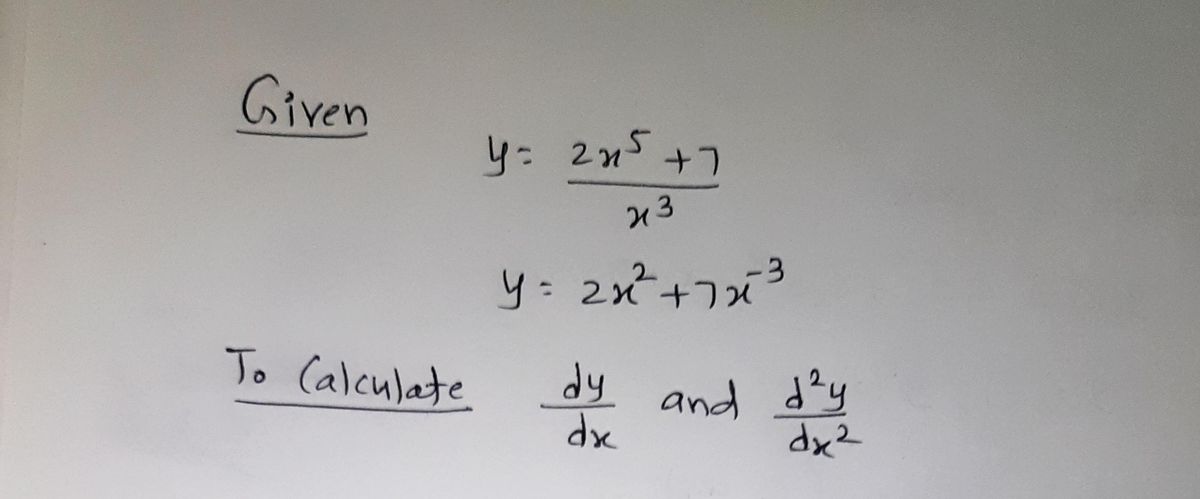 Given
y = 2x⁵ + 7 / x³
y = 2x² + 7x⁻³
To Calculate dy/dx and d²y/dx²